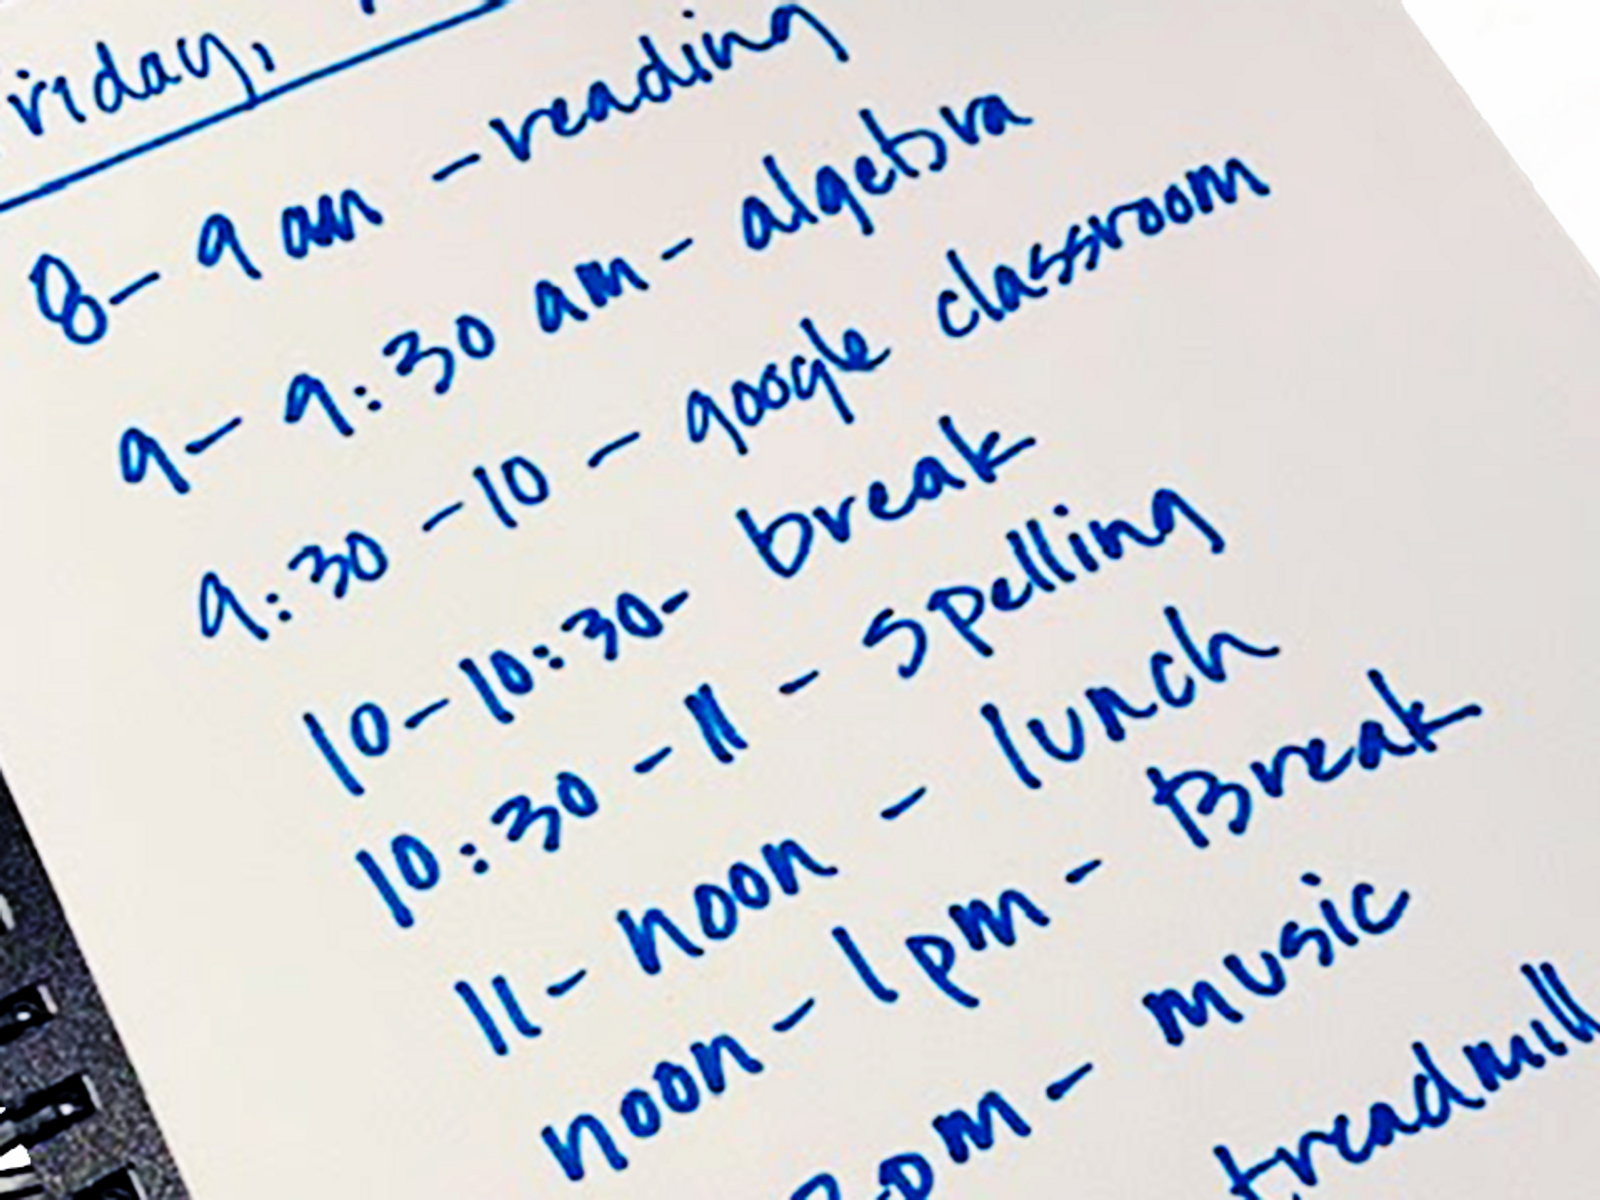 riday,
8- 9 am - reading
9- 9:30 am - algebra
9:30 -10 - google classroom
10-10:30- break
10:30 -11 - spelling
11- noon - lunch
noon- 1pm - Break
2pm - music
treadmill